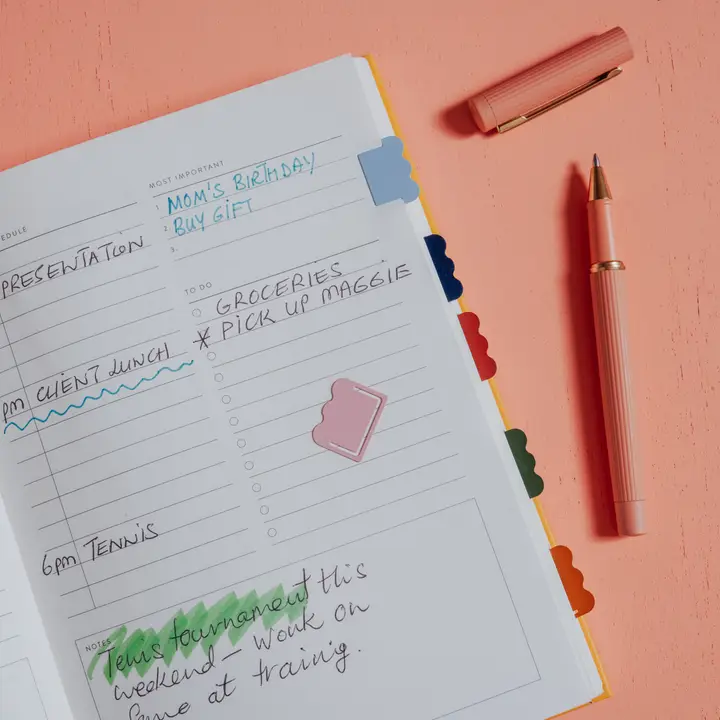 EDULE
PRESENTATION
pm CLIENT LUNCH
6pm TENNIS
MOST IMPORTANT
MOM'S BIRTHDAY
2 BUY GIFT
3.
TO DO
GROCERIES
* PICK UP MAGGIE
NOTES
Tenis tournament this
weekend – work on
at trainig.